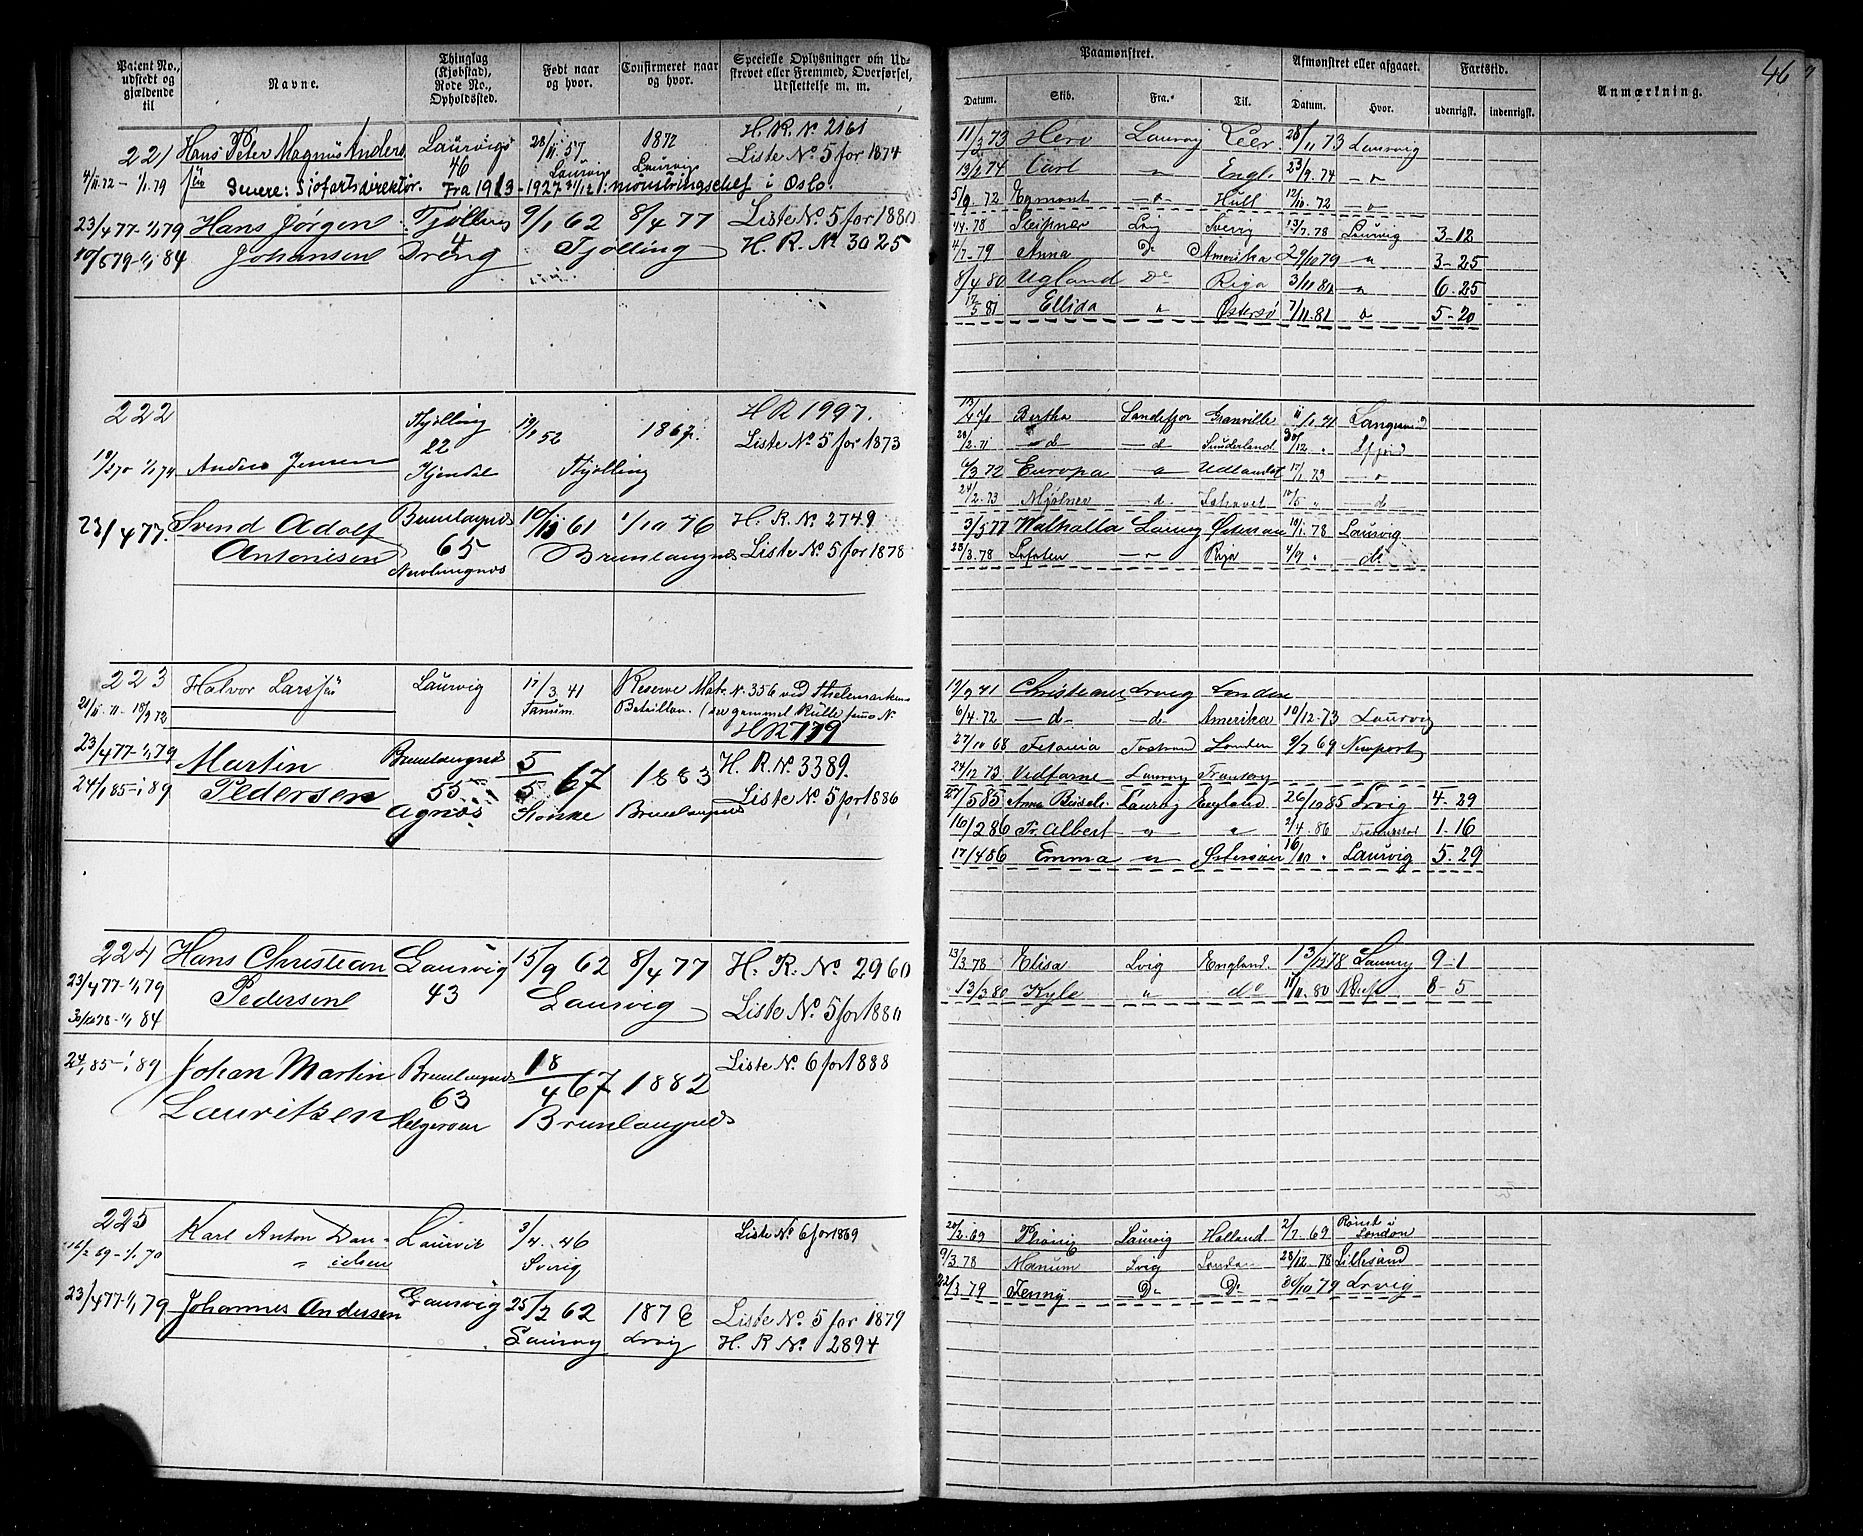 Patent No., udstedt og gjældende til
Navne.
Thinglag (Kjøbstad), Rode No., Opholdssted.
Født naar og hvor.
Confirmeret naar og hvor.
Specielle Oplysninger om Udskrevet eller Fremmed, Overførsel, Udslettelse m. m.
221 Hans Peter Magnus Anders Laurvigs 28/11 57 1872 H. R. No 2161
46 Laurvig Laurvig Liste No. 5 for 1874
4/11 72 – 1/1 79 sen
Senere: Sjøfartsdirektør. Fra 1913–1927 31/12: mønstringschef i Oslo.
23/4 77 – 1/1 79 Hans Jørgen Tjølling 9/1 62 8/4 77 Liste No. 5 for 1880
10/6 79 – 1/1 84 Johansen 4 Dreng Tjølling H. R. No. 3025
222 Thjølling 19/1 52 1867. H R 1997.
22 Liste No. 5 for 1873
19/2 70 1/1 74 Anders Jensen Hjendal Thjølling
23/4 77. Svend Adolf Brunlaugnes 10/11 61 1/10 76 H. R. No 2749
Antonisen 65 Brunlaugnes Liste No. 5 for 1878
Nevlungnes
223 Halvor Larssen Laurvig 17/3 41 Reserve Matr. N. 356 ved Thelemarkens
21/11 71 – 18/9 72 Tanum. Bataillon. (se gammel Rulle samme No
HR 779
23/4 77 – 1/1 79 Martin Brunlaugnes 5/5 67 1883 H. R. No. 3389.
24/1 85 – 1/1 89 Pedersen 55 Stokke Brunlaugnes Liste No. 5 for 1886
Agnæs
224 Hans Christian Laurvig 15/9 62 8/4 77 H. R. No 2960
23/4 77 – 1/1 79 Pedersen 43 Laurvig Liste No. 5 for 1880
30/10 78 – 1/1 84
24/1 85 – 1/1 89 Johan Martin Brunlaugnes 18/4 67 1882 Liste No. 6 for 1888
Lauritsen 63 Brunlaugnes
Helgeroen
225 Karl Anton Dan- Laurvik 3/4. 46 Liste No. 6 for 1869
16/2 69 – 1/1. 70 ielsen Sverig
23/4 77 – 1/1 79 Johannes Andersen Laurvig 25/2 62 187 Liste No. 5 for 1879
Laurvig Lrvig H. R No. 2894
46
Paamønstret.
Afmønstret eller afgaaet.
Fartstid.
Anmærkning.
Datum. Skib. Fra. Til. Datum. Hvor. udenrigsk. indenrigsk.
11/2 73 Hero Laurvig Leer 28/11 73 Laurvig
13/2 74 Carl " Engl. 23/9. 74 – " –
5/9. 72 Egmont – " – Hull 12/10. 72 – " –
4/4. 78 Sleipner Lvig Sverig 13/7. 78 Laurvig 3-12
4/7. 79 Anna Do Amerika 29/10 79 " 3-25
8/4 80 Ugland Do Riga 3/11 80 " 6-25
17/5 81 Ellida " Østersø 7/11. 81 " 5-20
Bertha Sandefjor Granville 11/10. 71 Langesund
28/2. 71 – d – – d – Sunderland 30/12 " Sfjord
6/3 72 Europa " Udlandet 17/1 73 – " –
24/2. 73 Mjølner – d – Ishavet 17/5 " – d –
3/5 77 Walhalla Laurvig Østersøen 19/1. 78 Laurvig
23/3. 78 Lofoten – " – Riga 4/9 " – do
19/9 71 Christiane Lrvig London
6/4. 72 – d – – d – Amerika 10/12. 73 Laurvig
27/10 68 London 9/7 69 Newport
24/12 73 Vidfarne Laurvig
27/5 85 Laurvig England 26/10 85 Lrvig 4-29
16/2 86 Fr. Albert " " 2/4. 86 1-16
17/4 86 Emma " Østersøen 16/10 " Laurvig 5. 29
13/3. 78 Elisa Lvig England. 13/12 78 Laurvig 9-1
13/3 80 Kyle " do 18/11. 80 8-5
20/2. 69 Laurvig Holland 2/7. 69 Rømt i London
9/3. 78 Manum Lvig 28/12. 78 Lillesand
22/3. 79 Jenny Do Do 30/10 79 Lrvig